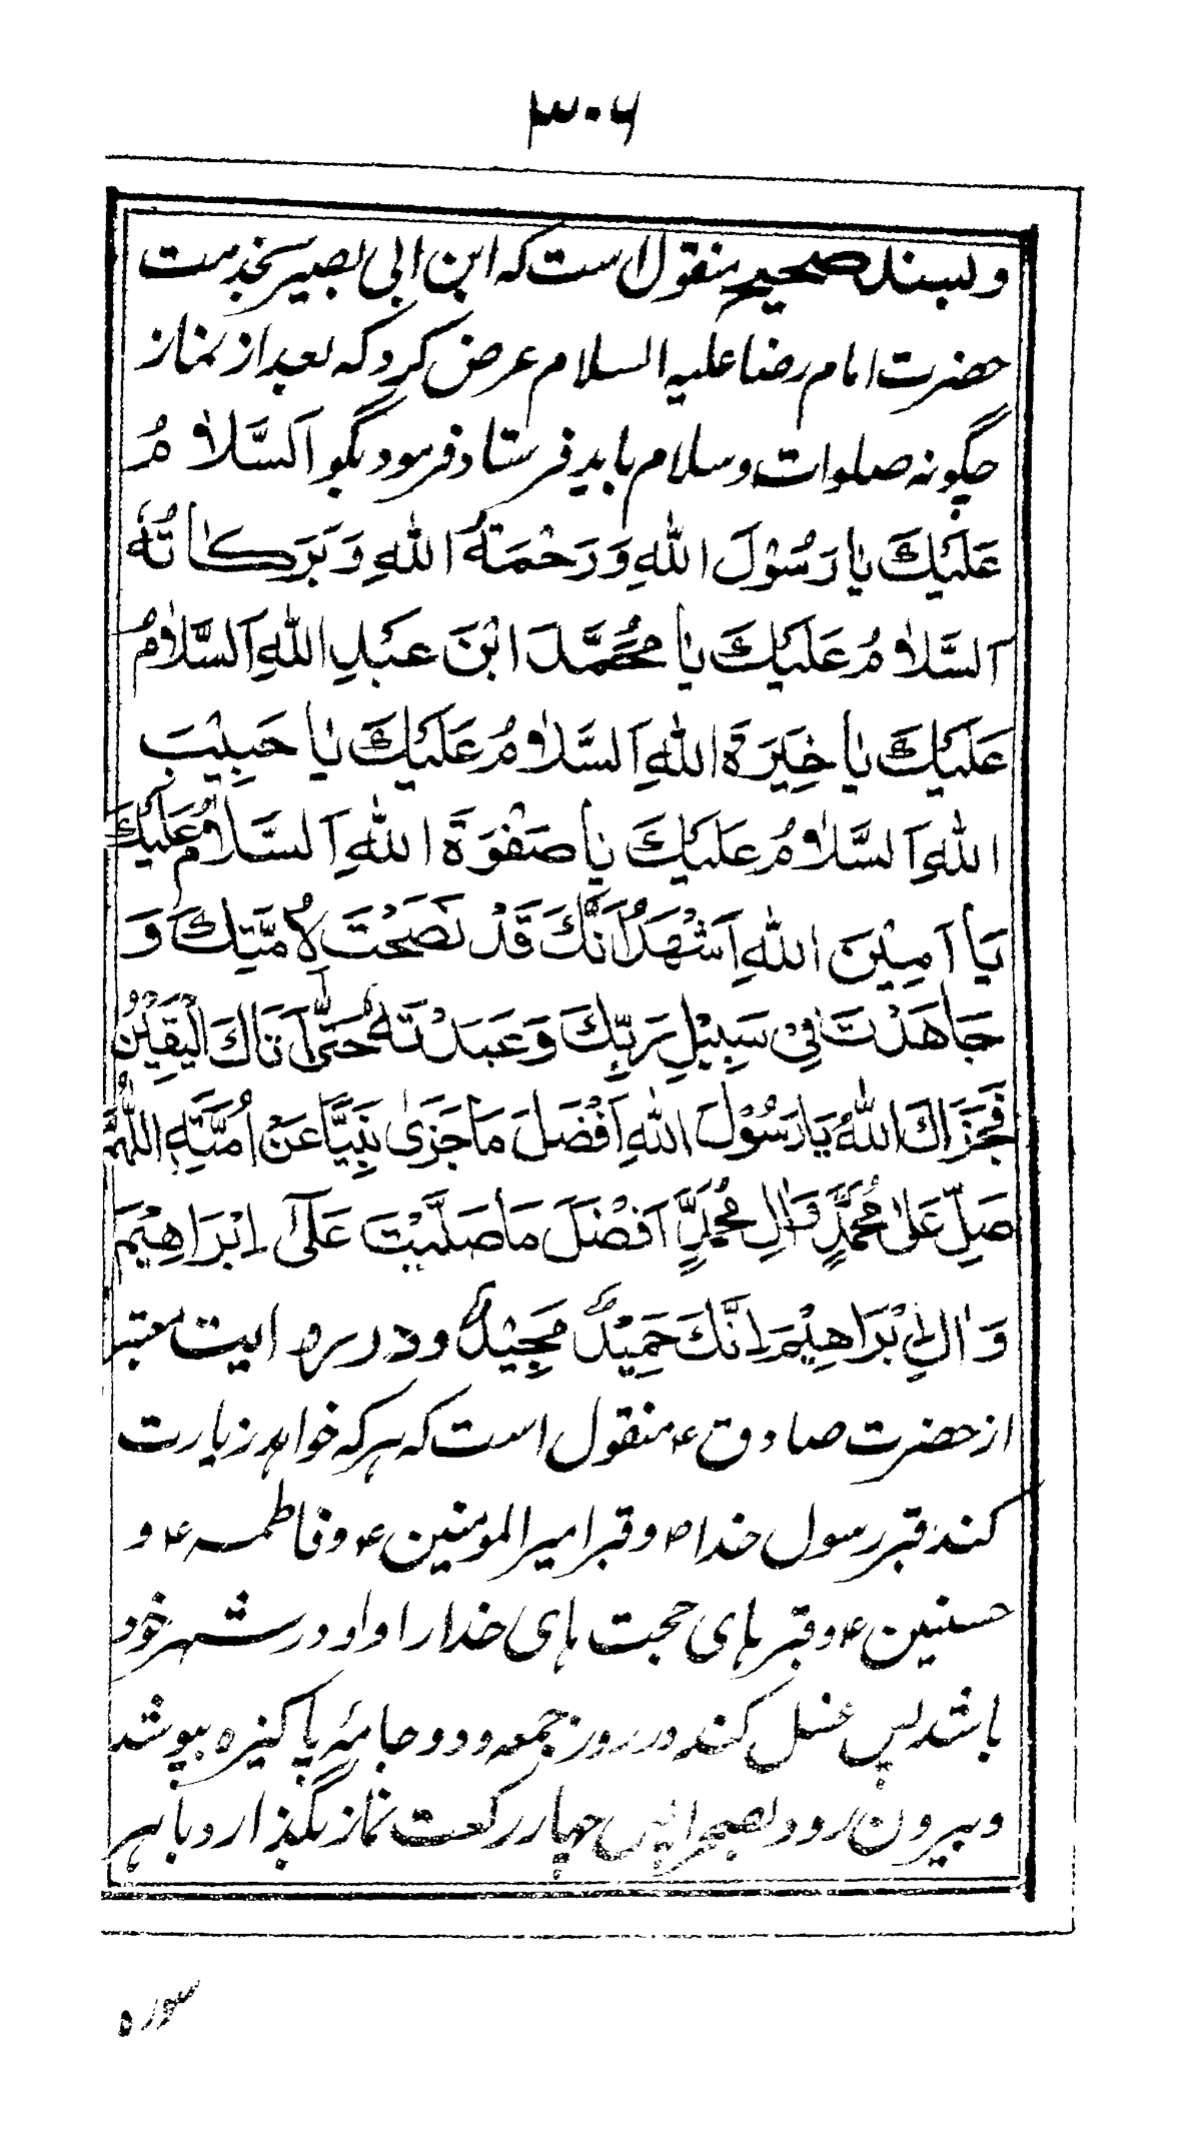 ۳۰۶
و بسند صحیح منقول است که ابن ابی بصیر بخدمت
حضرت امام رضا علیه السلام عرض کرد که بعد از نماز
چگونه صلوات و سلام باید فرستاد فرمود بگو اَلسَّلاٰمُ
عَلَیْكَ یٰا رَسُوْلَ اللّٰهِ وَ رَحْمَةُ اللّٰهِ وَ بَرَكٰاتُهُ
اَلسَّلاٰمُ عَلَیْكَ یٰا مُحَمَّدَ ابْنَ عَبْدِ اللّٰهِ اَلسَّلاٰمُ
عَلَیْكَ یٰا خِیَرَةَ اللّٰهِ اَلسَّلاٰمُ عَلَیْكَ یٰا حَبِیْبَ
اللّٰهِ اَلسَّلاٰمُ عَلَیْكَ یٰا صَفْوَةَ اللّٰهِ اَلسَّلاٰمُ عَلَیْكَ
یَا اَمِیْنَ اللّٰهِ اَشْهَدُ اَنَّكَ قَدْ نَصَحْتَ لِاُمَّتِكَ وَ
جَاهَدْتَ فِیْ سَبِیْلِ رَبِّكَ وَ عَبَدْتَهُ حَتّٰی اَتَاكَ الْیَقِیْنُ
فَجَزَاكَ اللّٰهُ یَا رَسُوْلَ اللّٰهِ اَفْضَلَ مَا جَزٰی نَبِیًّا عَنْ اُمَّتِهِ اللّٰهُمَّ
صَلِّ عَلٰی مُحَمَّدٍ وَّ اٰلِ مُحَمَّدٍ اَفْضَلَ مَا صَلَّیْتَ عَلٰی اِبْرَاهِیْمَ
وَ اٰلِ اِبْرَاهِیْمَ اِنَّكَ حَمِیْدٌ مَجِیْدٌ و در روایت معتبر
از حضرت صادق ؑ منقول است که هر که خواهد زیارت
کند قبر رسول خدا ؐ و قبر امیر المومنین ؑ و فاطمه ؑ و
حسنین ؑ و قبر های حجت های خدا را و او در شهر خود
باشد پس غسل کند در روز جمعه و دو جامهٔ پاکیزه بپوشد
و بیرون رود بصحرا پس چهار رکعت نماز بگذارد با هر
سوره